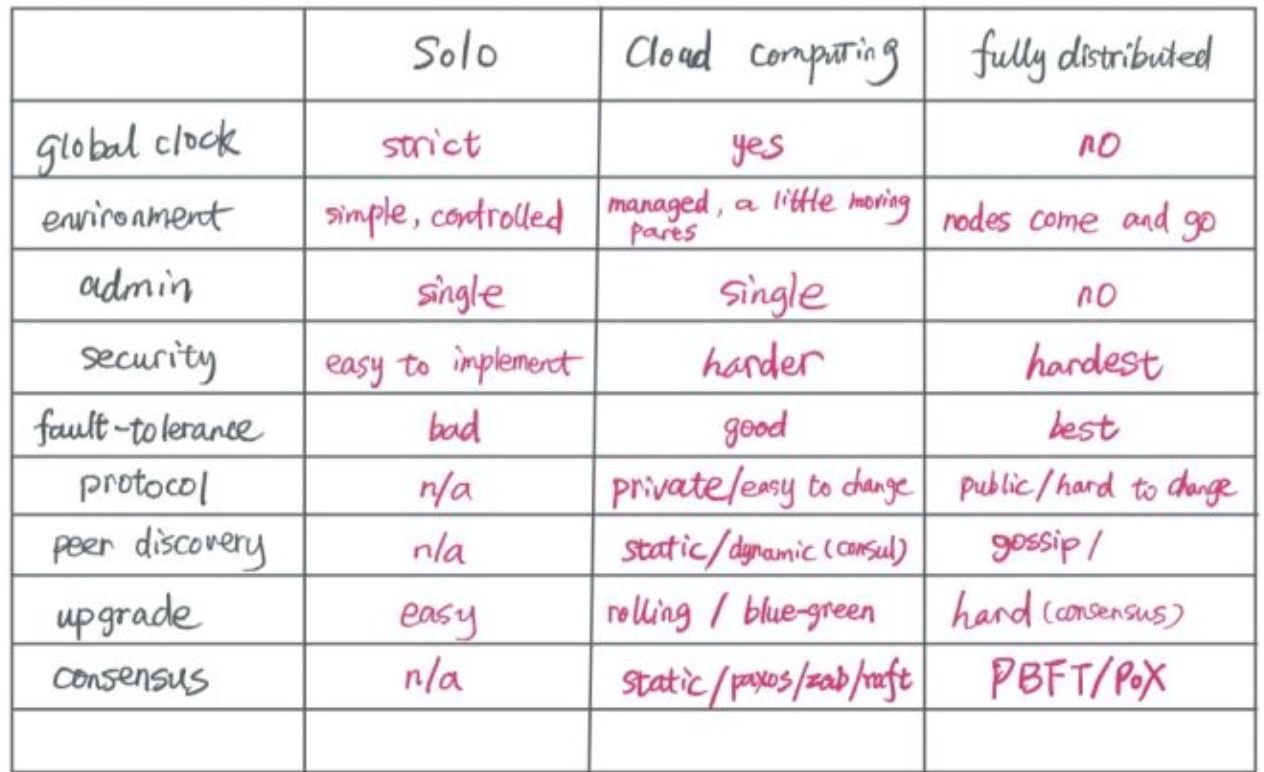 Solo Cloud computing fully distributed
global clock strict yes no
environment simple, controlled managed, a little moving pares nodes come and go
admin single single no
security easy to implement harder hardest
fault-tolerance bad good best
protocol n/a private/easy to change public/hard to change
peer discovery n/a static/dynamic (consul) gossip/
upgrade easy rolling / blue-green hard (consensus)
consensus n/a static/paxos/zab/raft PBFT/PoX